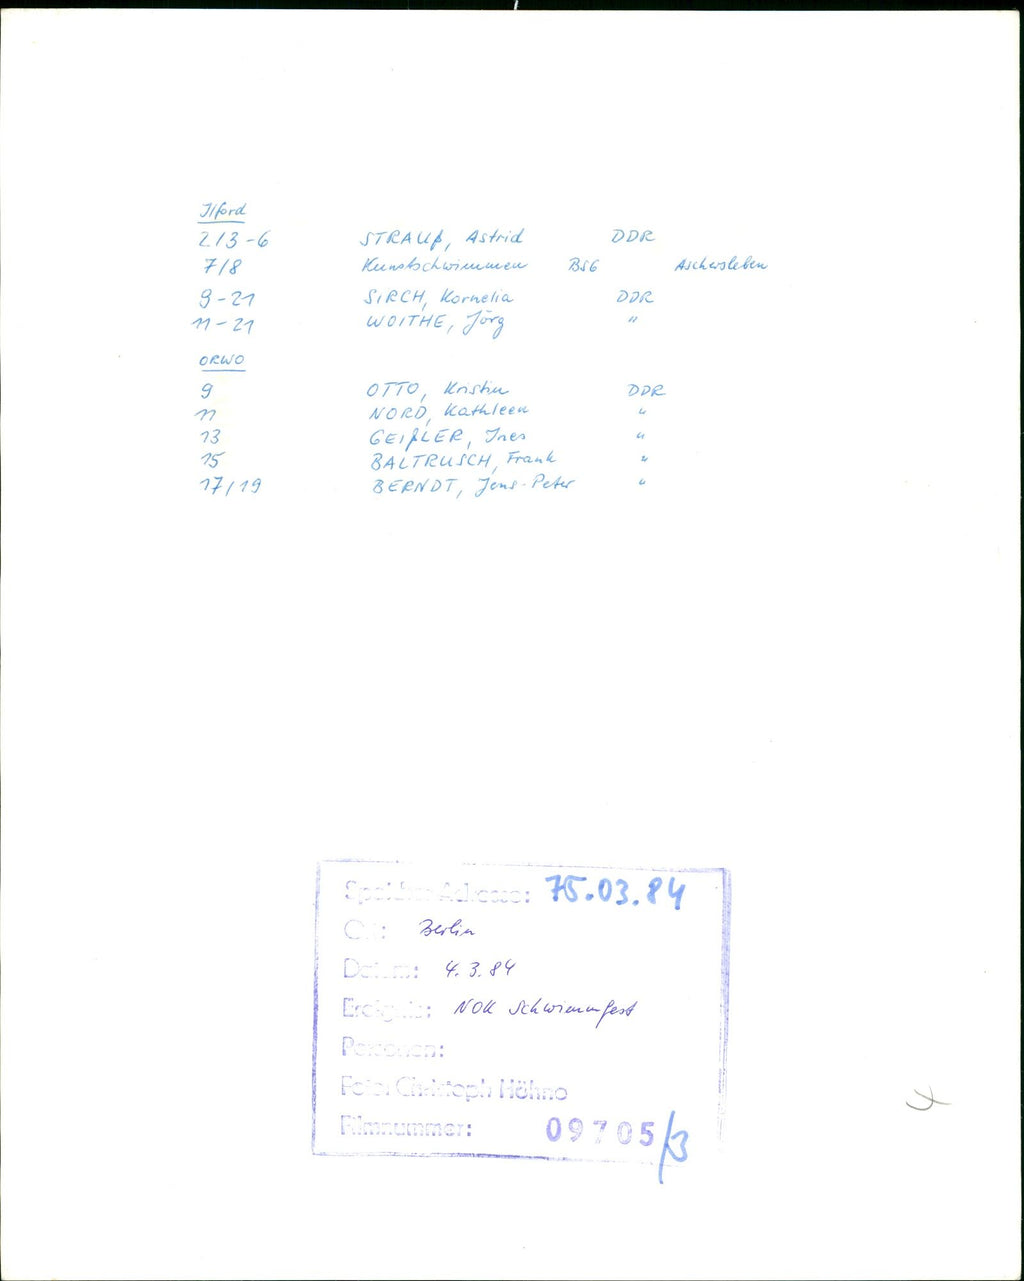 Ilford
2/3-6 STRAUß, Astrid DDR
7/8 Kunstschwimmen BSG Aschersleben
9-21 SIRCH, Kornelia DDR
11-21 WOITHE, Jörg "
ORWO
9 OTTO, Kristin DDR
11 NORD, Kathleen "
13 GEIßLER, Ines "
15 BALTRUSCH, Frank "
17/19 BERNDT, Jens-Peter "
Adresse: 75.03.84
Ort: Berlin
Datum: 4.3.84
Ereignis: NOK Schwimmfest
Personen:
Foto: Christoph Höhne
Filmnummer: 09705/3